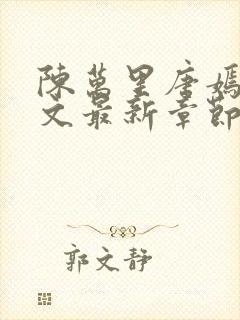 陳萬里唐嫣
文最新章節
郭文靜